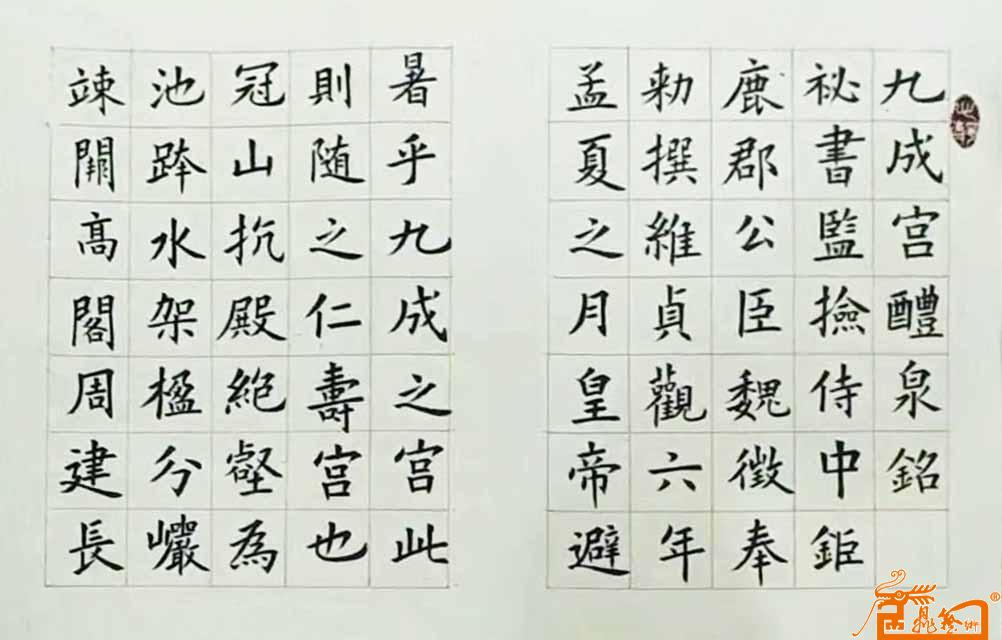 九成宫醴泉銘
祕書監撿侍中鉅
鹿郡公臣魏徵奉
勑撰維貞觀六年
孟夏之月皇帝避
暑乎九成之宫此
則随之仁壽宫也
冠山抗殿絶壑為
池跨水架楹分巖
竦闕高閣周建長